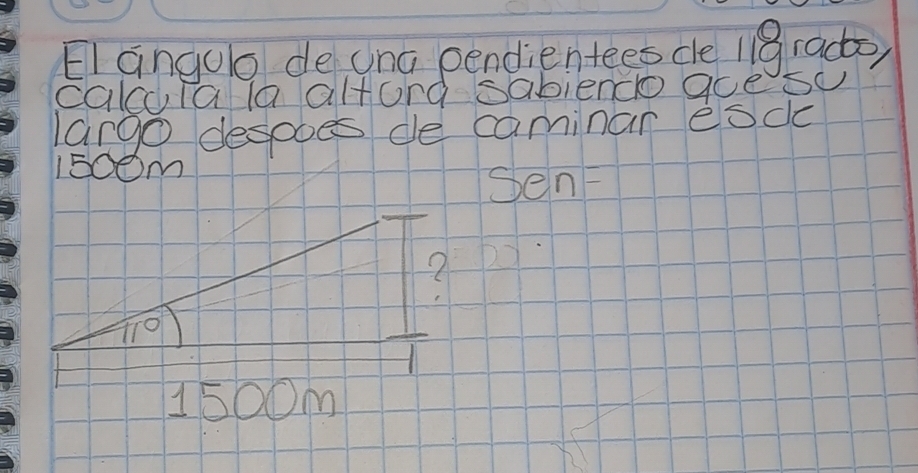 El ángulo de una pendientees de 11grados,
calcula la altura sabiendo que su
largo despoes de caminar esde
1500m
Sen=
?
11°
1500m